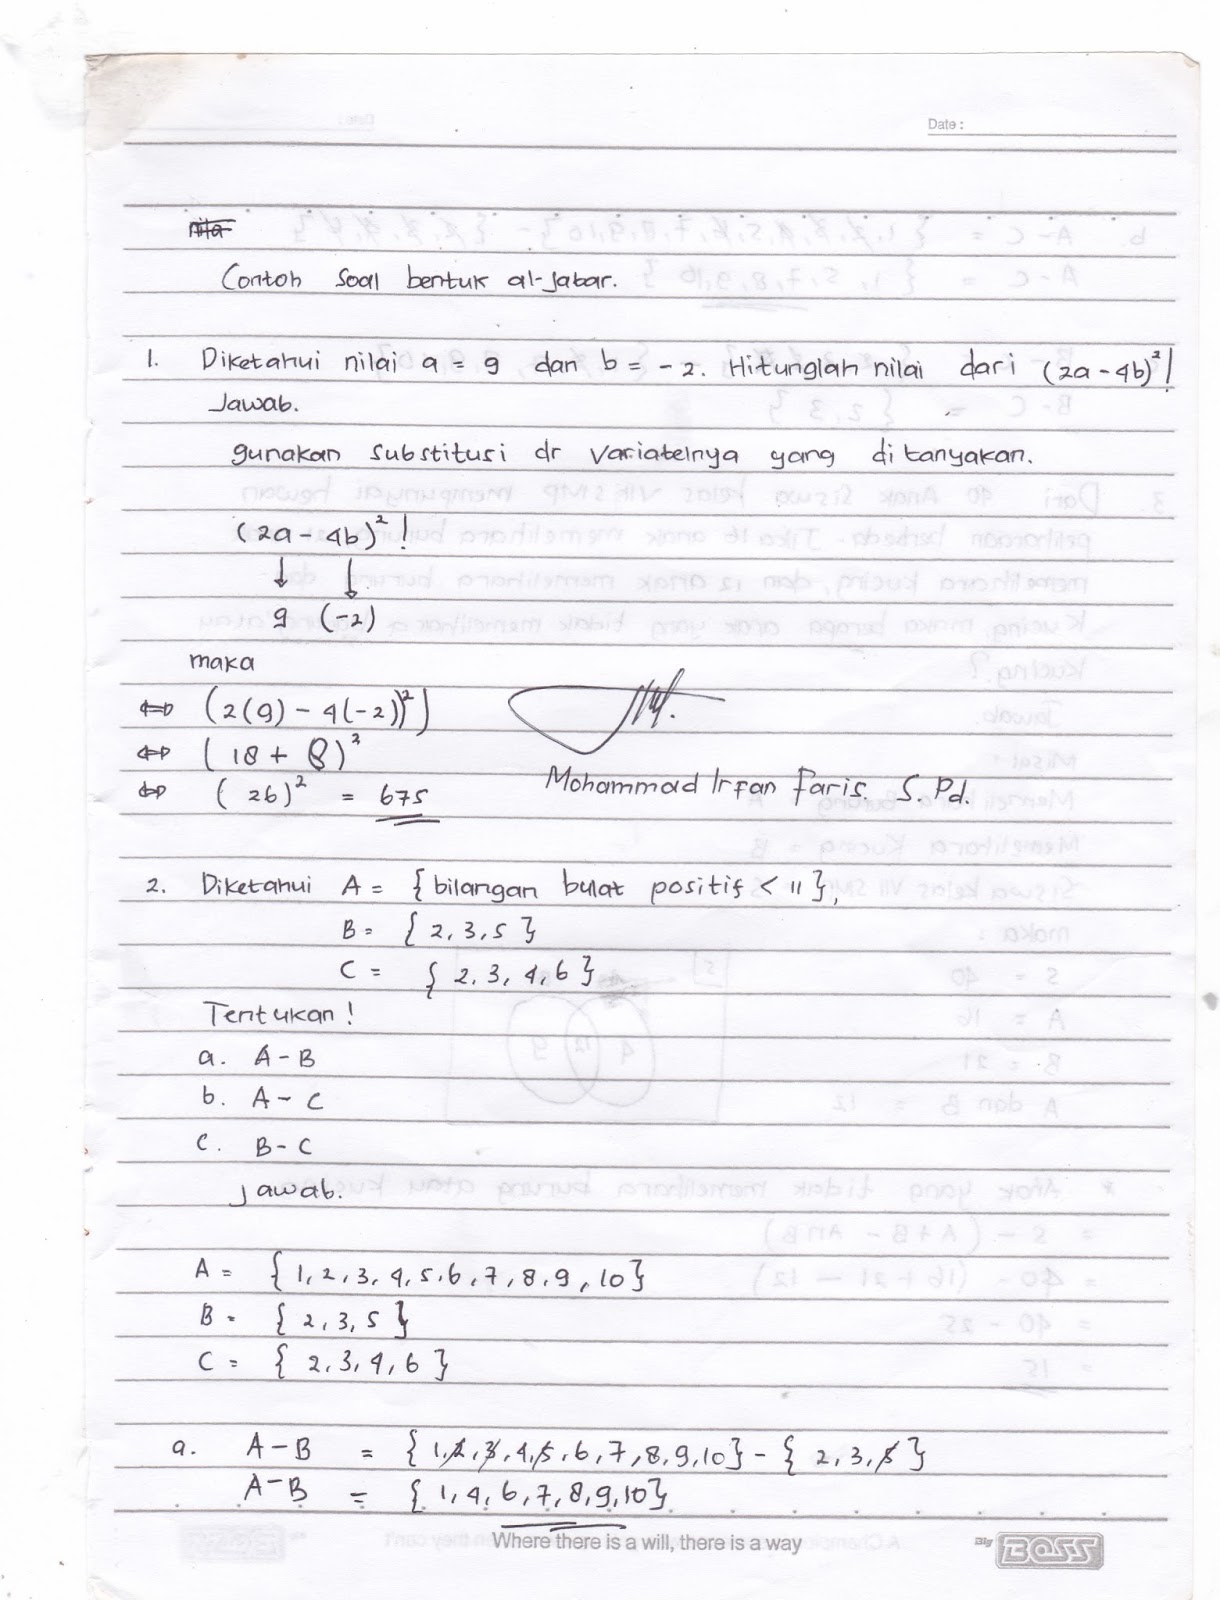 Date :
nita
Contoh Soal bentuk al-jabar.
1. Diketahui nilai a = 9 dan b = -2. Hitunglah nilai dari (2a - 4b)²!
Jawab.
gunakan substitusi dr variabelnya yang ditanyakan.
(2a - 4b)²!
↓ ↓
9 (-2)
maka
⇔ (2(9) - 4(-2))²)
⇔ (18 + 8)²
⇔ (26)² = 675
Mohammad Irfan Faris, S.Pd.
2. Diketahui A = {bilangan bulat positif < 11},
B = {2, 3, 5}
C = {2, 3, 4, 6}
Tentukan!
a. A - B
b. A - C
c. B - C
Jawab.
A = {1, 2, 3, 4, 5, 6, 7, 8, 9, 10}
B = {2, 3, 5}
C = {2, 3, 4, 6}
a. A - B = {1, 2, 3, 4, 5, 6, 7, 8, 9, 10} - {2, 3, 5}
A - B = {1, 4, 6, 7, 8, 9, 10}
Where there is a will, there is a way
Big BOSS